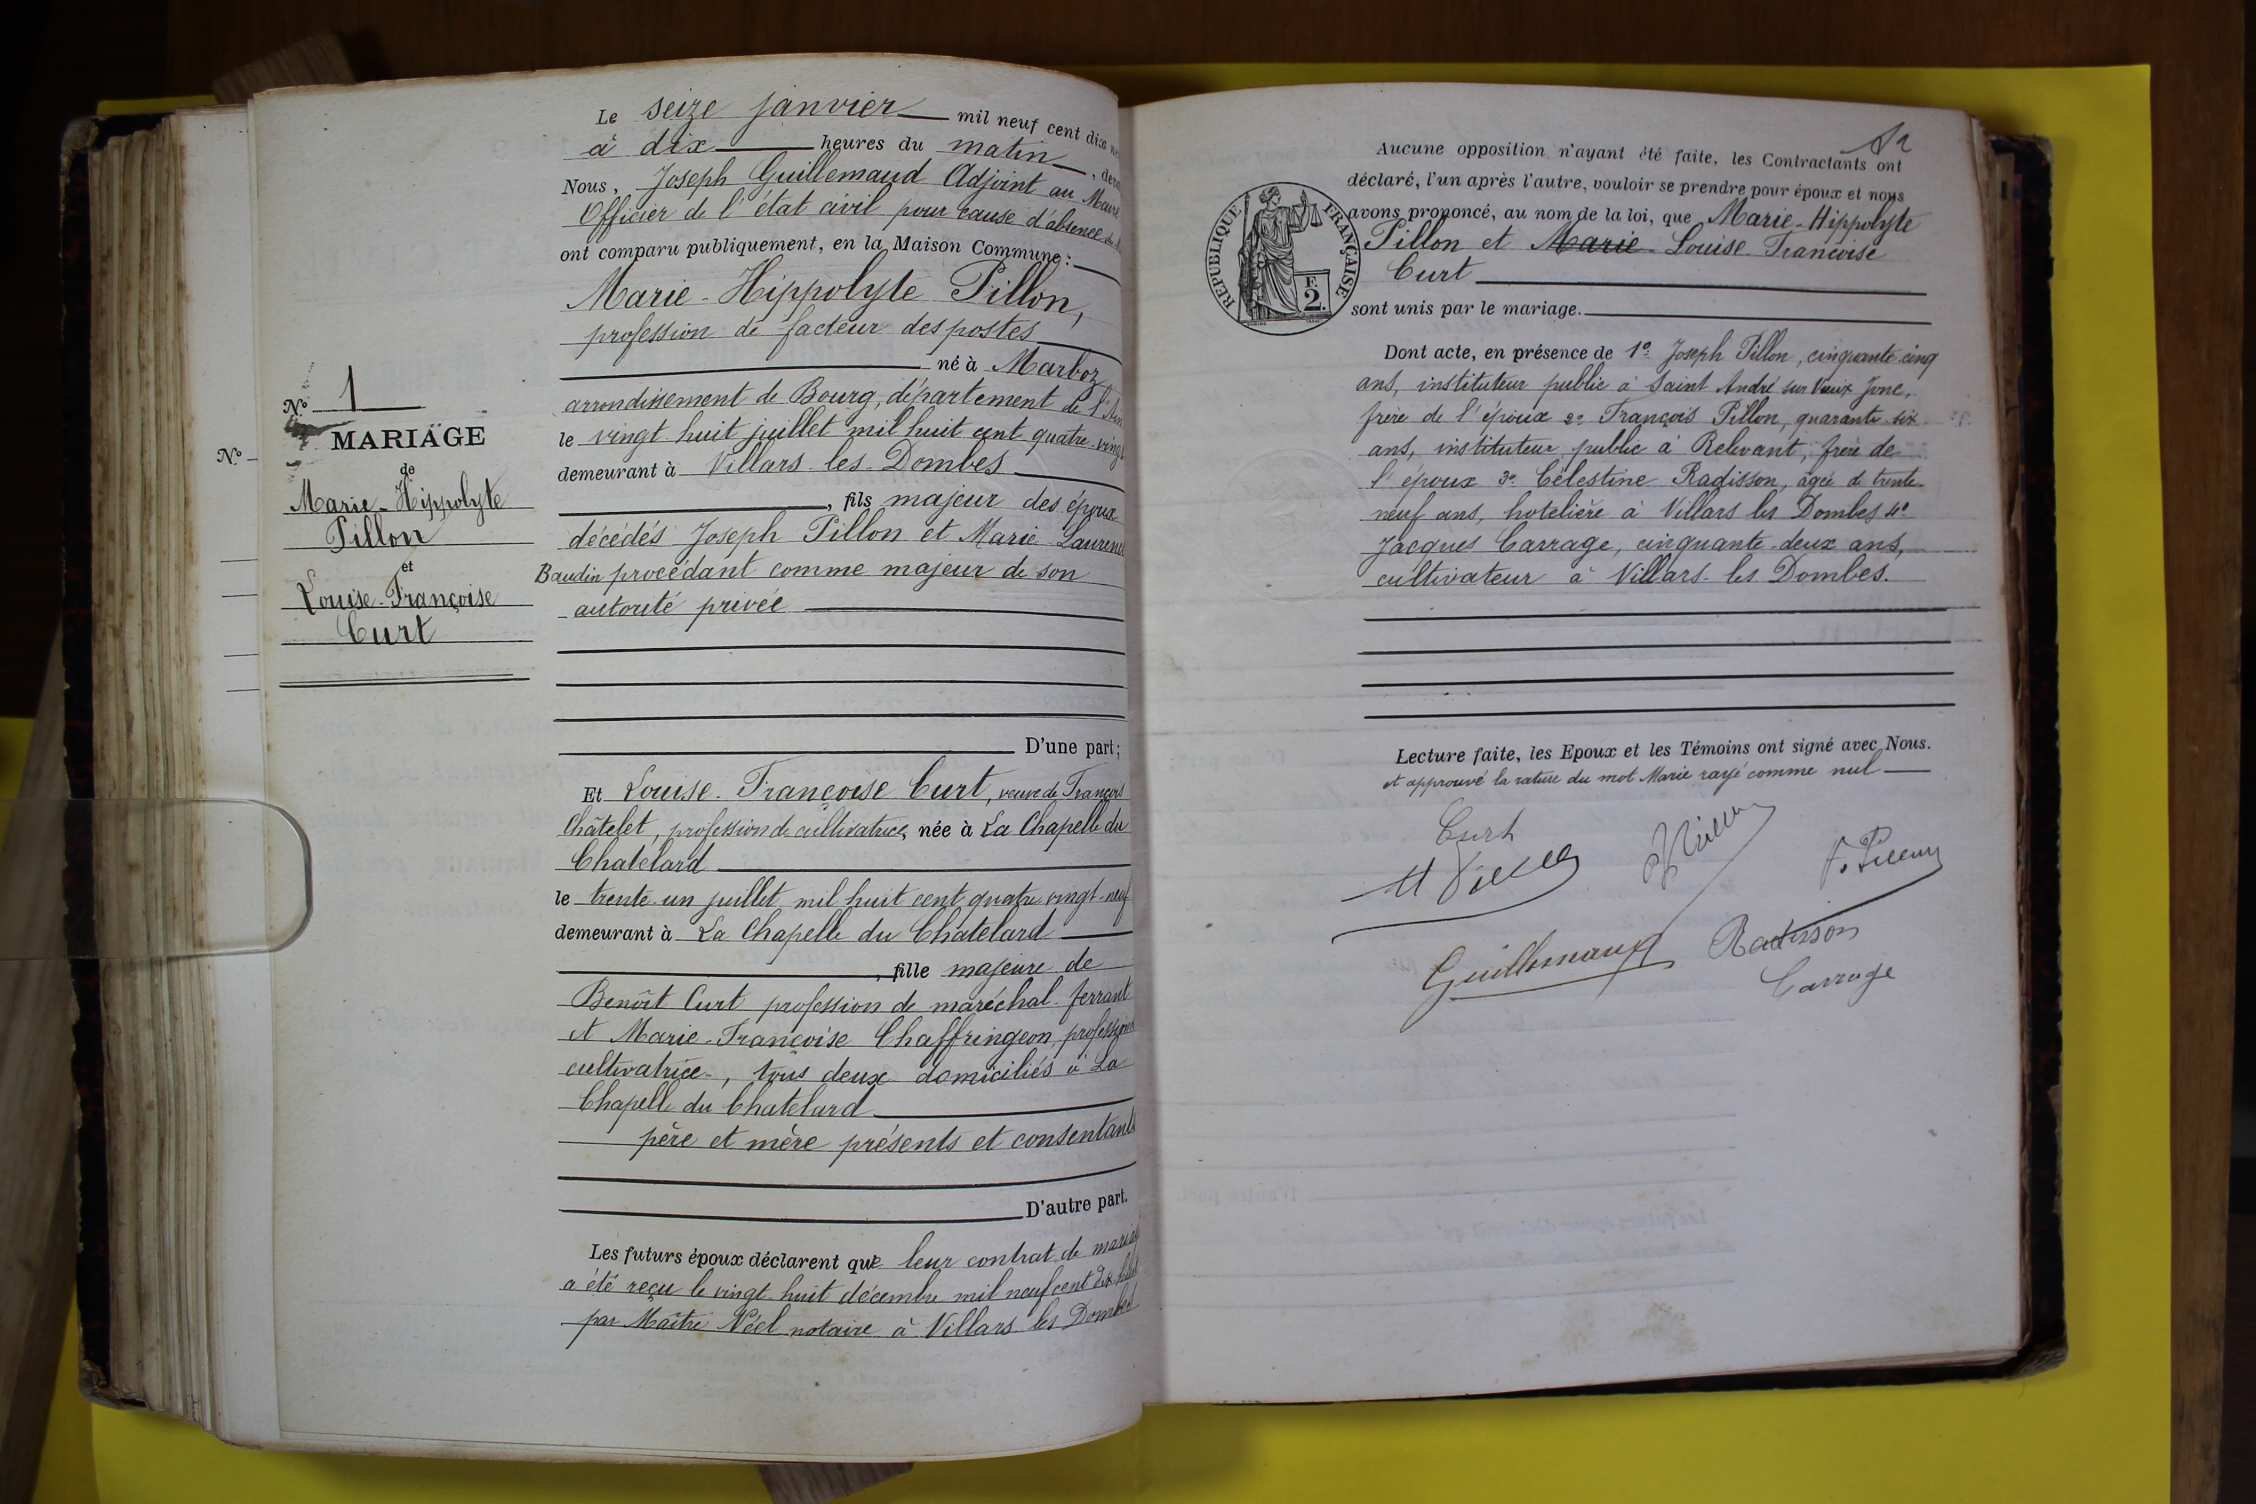 N° 1
MARIAGE
de
Marie-Hippolyte
Pillon
et
Louise-Françoise
Curt
N°
Le seize janvier mil neuf cent dix
à dix heures du matin,
Nous, Joseph Guillemaud Adjoint au Maire
Officier de l'état civil pour cause d'absence
ont comparu publiquement, en la Maison Commune:
Marie-Hippolyte Pillon,
profession de facteur des postes
né à Marboz
arrondissement de Bourg, département de l'Ain
le vingt huit juillet mil huit cent quatre-vingt
demeurant à Villars-les-Dombes
, fils majeur des époux
décédés Joseph Pillon et Marie Laurence
Baudin procédant comme majeur de son
autorité privée
D'une part;
Et Louise-Françoise Curt, veuve de François
Châtelet, profession de cultivatrice, née à La Chapelle du
Chatelard
le trente-un juillet mil huit cent quatre vingt-neuf
demeurant à La Chapelle du Châtelard
, fille majeure de
Benoît Curt profession de maréchal-ferrant
et Marie-Françoise Chaffringeon, profession
cultivatrice, tous deux domiciliés à La
Chapelle du Chatelard
père et mère présents et consentants
D'autre part.
Les futurs époux déclarent que leur contrat de mariage
a été reçu le vingt-huit décembre mil neuf cent dix huit
par Maître Néel notaire à Villars les Dombes
12
Aucune opposition n'ayant été faite, les Contractants ont
déclaré, l'un après l'autre, vouloir se prendre pour époux et nous
avons prononcé, au nom de la loi, que Marie-Hippolyte
Pillon et Marie-Louise-Francoise
Curt
sont unis par le mariage.
RÉPUBLIQUE FRANÇAISE
E
2
Dont acte, en présence de 1° Joseph Pillon, cinquante-cinq
ans, instituteur public à Saint André sur Vieux Jonc,
frère de l'époux 2° François Pillon, quarante-six
ans, instituteur public à Relevant, frère de
l'époux 3° Célestine Radisson, âgée de trente-
neuf ans, hotelière à Villars les Dombes 4°
Jacques Carrage, cinquante-deux ans,
cultivateur à Villars-les Dombes.
Lecture faite, les Epoux et les Témoins ont signé avec Nous.
et approuvé la rature du mot Marie rayé comme nul
Curt
H Pillon
J Pillon
F. Pillon
Guillemaud
Radisson
Carrage